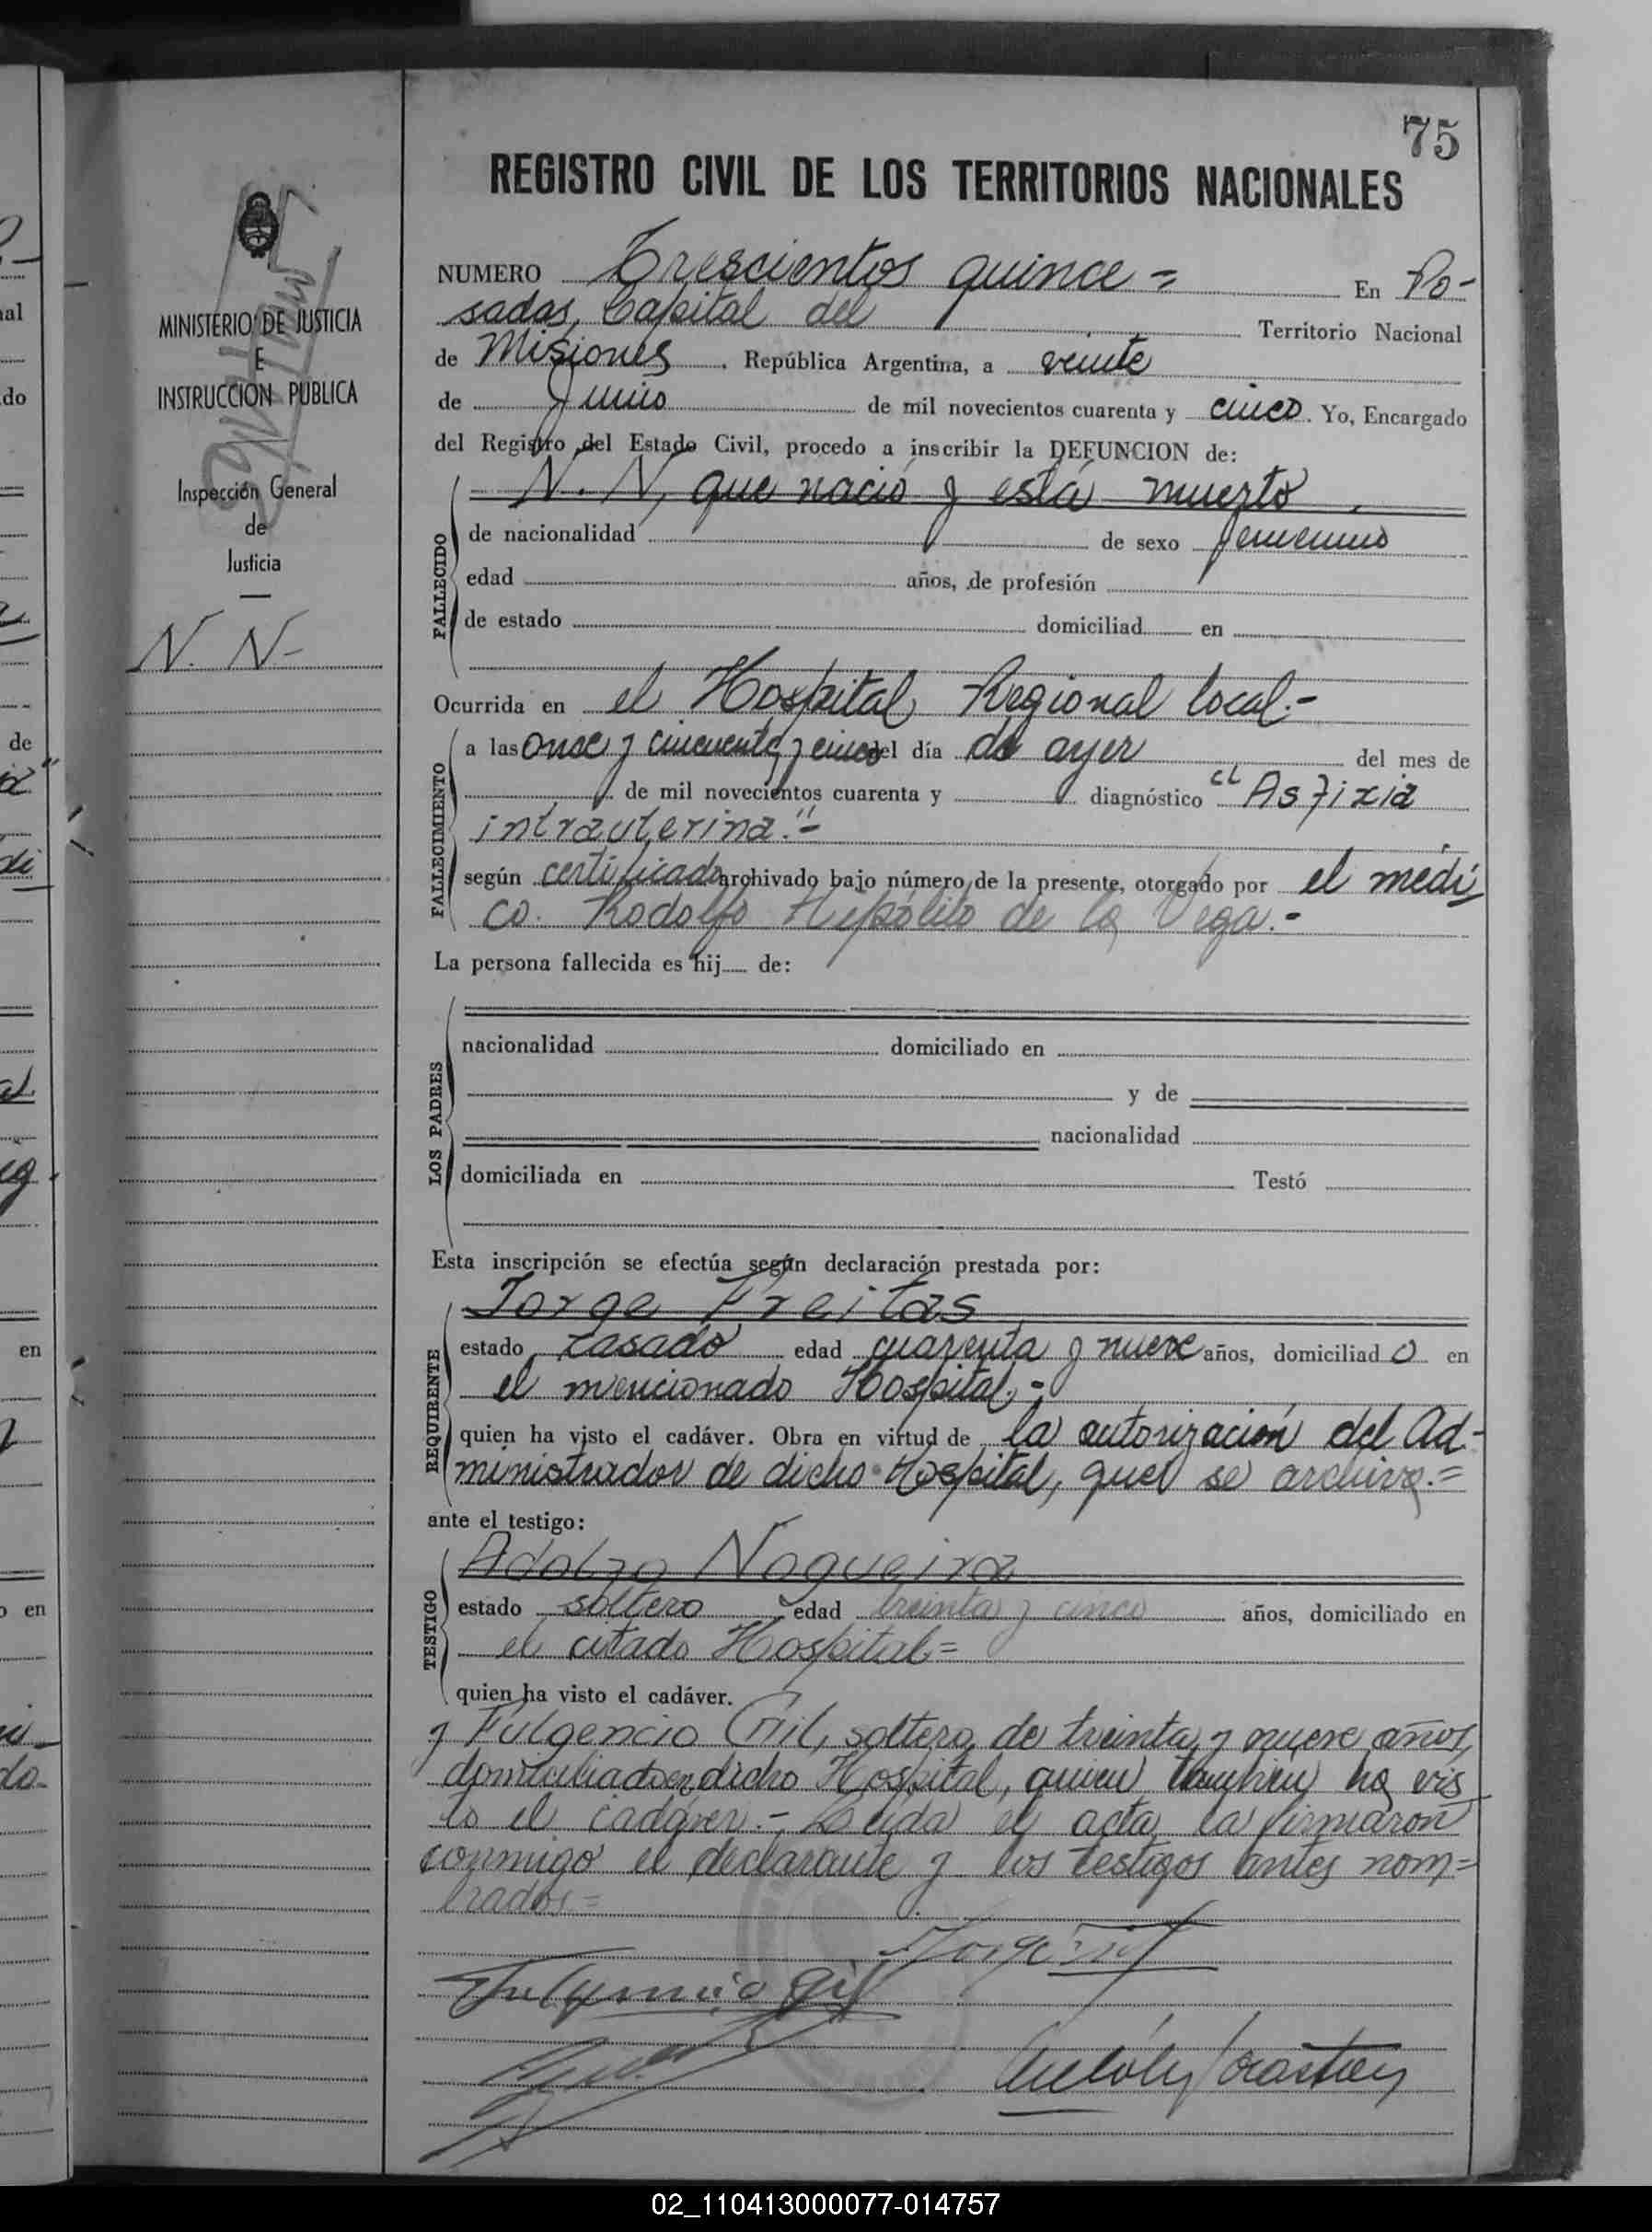 75
REGISTRO CIVIL DE LOS TERRITORIOS NACIONALES
MINISTERIO DE JUSTICIA
E
INSTRUCCION PUBLICA
Inspección General
de
Justicia
N. N-
NUMERO Trescientos quince = En Po-
sadas, Capital del Territorio Nacional
de Misiones, República Argentina, a veinte
de Junio de mil novecientos cuarenta y cinco. Yo, Encargado
del Registro del Estado Civil, procedo a inscribir la DEFUNCION de:
N. N, que nació y está muerto
FALLECIDO
de nacionalidad de sexo femenino
edad años, de profesión
de estado domiciliad en
Ocurrida en el Hospital Regional local.-
FALLECIMIENTO
a las once y cincuenta y cinco del día de ayer del mes de
de mil novecientos cuarenta y diagnóstico "Asfixia
intrauterina."-
según certificado archivado bajo número de la presente, otorgado por el médi
co. Rodolfo Hipólito de la Vega.-
La persona fallecida es hij de:
LOS PADRES
nacionalidad domiciliado en
y de
nacionalidad
domiciliada en Testó
Esta inscripción se efectúa según declaración prestada por:
Jorge Freitas
REQUIRENTE
estado casado edad cuarenta y nueve años, domiciliado en
el mencionado Hospital,-
quien ha visto el cadáver. Obra en virtud de la autorización del Ad-
ministrador de dicho Hospital, que se archiva.=
ante el testigo:
Adolfo Nogueira
TESTIGO
estado soltero edad treinta y cinco años, domiciliado en
el citado Hospital=
quien ha visto el cadáver.
y Fulgencio Gil, soltero, de treinta y nueve años,
domiciliado en dicho Hospital, quien también ha vis
to el cadáver.- Leída el acta, la firmaron
conmigo el declarante y los testigos antes nom=
brados=
Fulgencio Gil
02_110413000077-014757